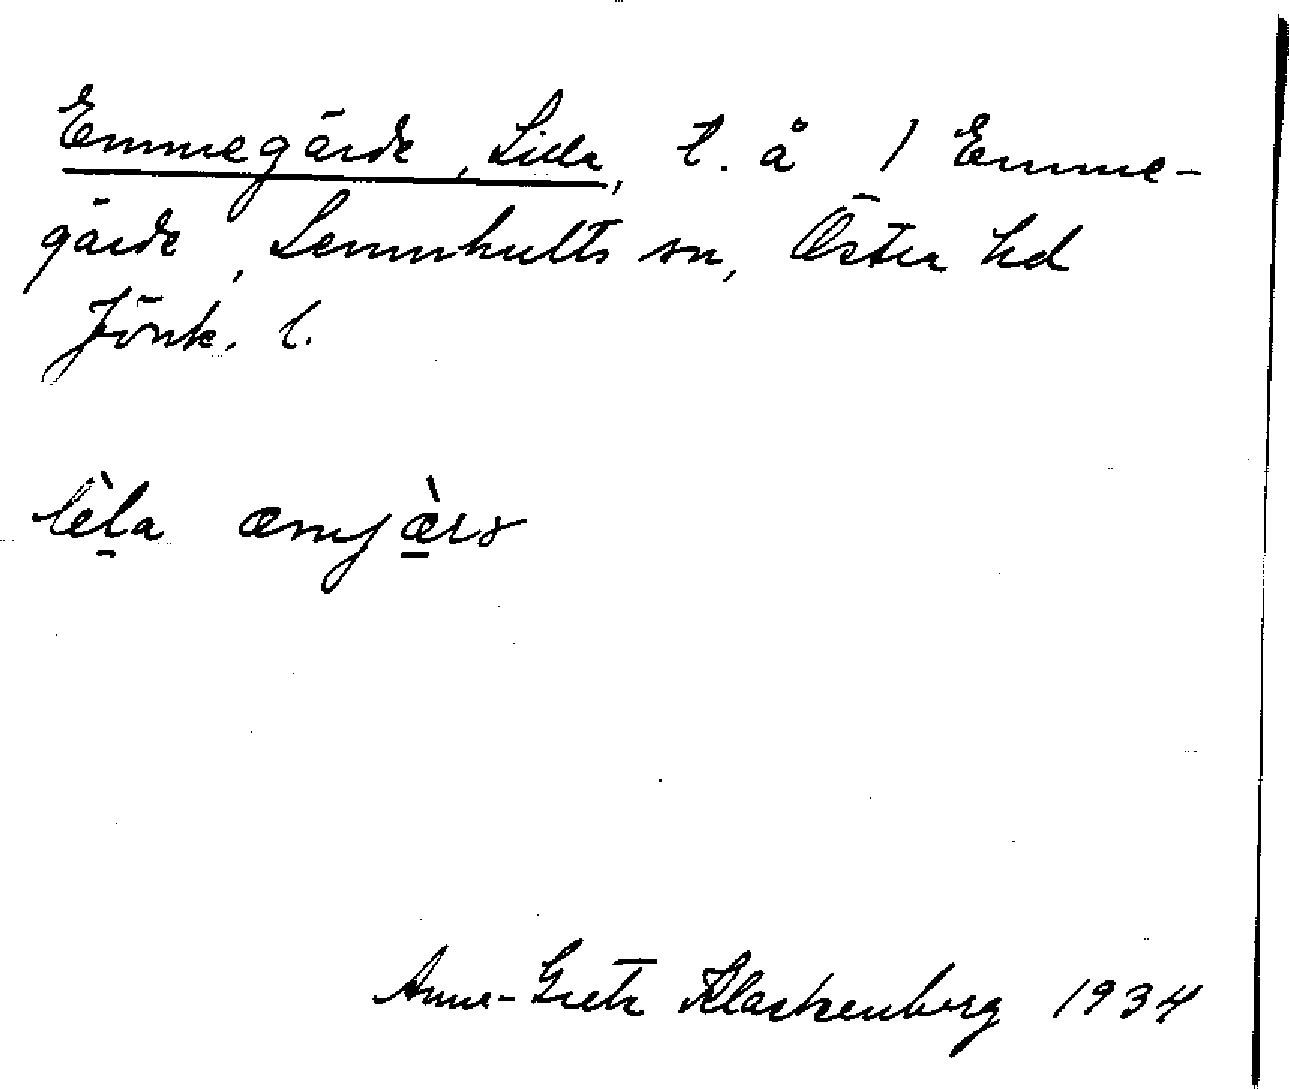 Emmegärde, Lilla, t. å 1 Emme-
gärde, Lemnhults sn, Öster hd
Jönk. l.
lèla æmjæ̀rs
Anna-Greta Klackenberg 1934